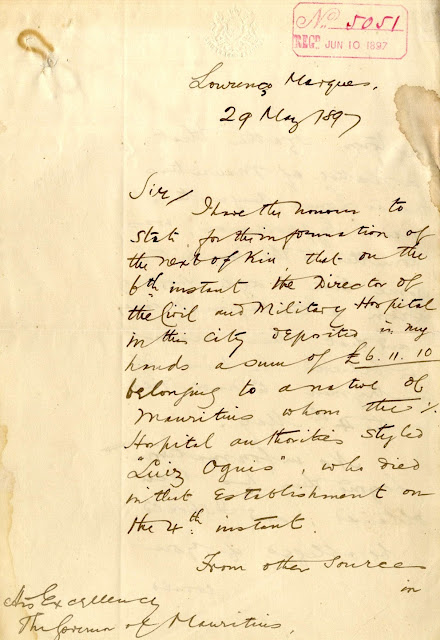 No. 5051
REGD JUN 10 1897
Lourenço Marques,
29 May 1897
Sir/
I have the honour to
state, for the information of
the next of Kin, that on the
6th instant the Director of
the Civil and Military Hospital
in this city deposited in my
hands a sum of £6. 11. 10
belonging to a native of
Mauritius whom the
Hospital authorities styled
"Luiz Oguis", who died
in that Establishment on
the 4th instant.
From other sources
in
His Excellency
The Governor of Mauritius